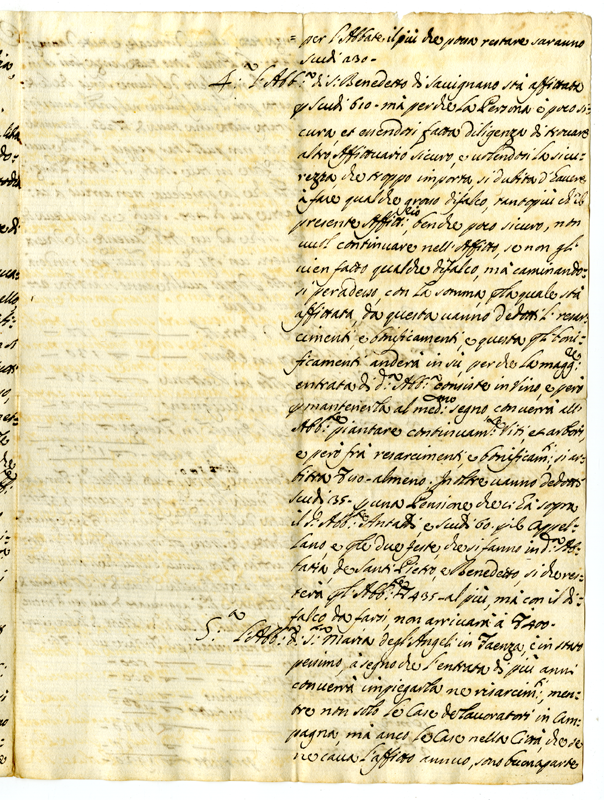 = per l'Abbate il più che possa restare saranno
scudi 230 -
4:º L'Abb:ª di S. Benedetto di Savignano stà affittata
p scudi 610 - mà perche la Persona è poco si=
cura et essendosi fatta diligenza di trovare
altro Affittuario sicuro, e volendosi la sicu=
rezza, che troppo importa, si dubita d'havere
à fare qualche grosso difalco, tantopiù ch'il
presente Affitt:rio, benche poco sicuro, non
vuol continuare nell'Affitto, se non gli
vien fatto qualche difalco, mà caminando=
si per adesso, con la somma, p la quale stà
affittata, da questa vanno dedotti li resar=
cimenti, e bonificamenti, e questa p li boni=
ficamenti anderà in sù, perche la magg:re
entrata di d:ª Abb:ª consiste in Vino, e però
p mantenerla al med:mo segno, converrà all'
Abb:te piantare continuam:te Viti, et arbori,
e però frà resarcimenti e bonificam:ti si ar=
bitra 110 - almeno. Inoltre vanno dedotti
scudi 135 - p una Pensione che ci hà sopra
il S:r Abb:te e scudi 60 - p il Cappel=
lano, e p le due feste, che si fanno in d:ª Ab=
batia, de Santi Pietro, e Benedetto, si che res=
terà p l'Abb:te 435 - al più, mà con il di=
falco da farsi, non arriverà à 400 -
5:º L'Abb:ª di S:ª Maria degl'Angeli in Faenza, è in stato
pessimo à segno che l'entrata di più anni
converrà impiegarla ne resarcim:ti, men=
tre non solo le Case de lavoratori in Cam=
pagna, mà anco le Case nella Città, che se
ne cava l'affitto annuo, sono buonaparte